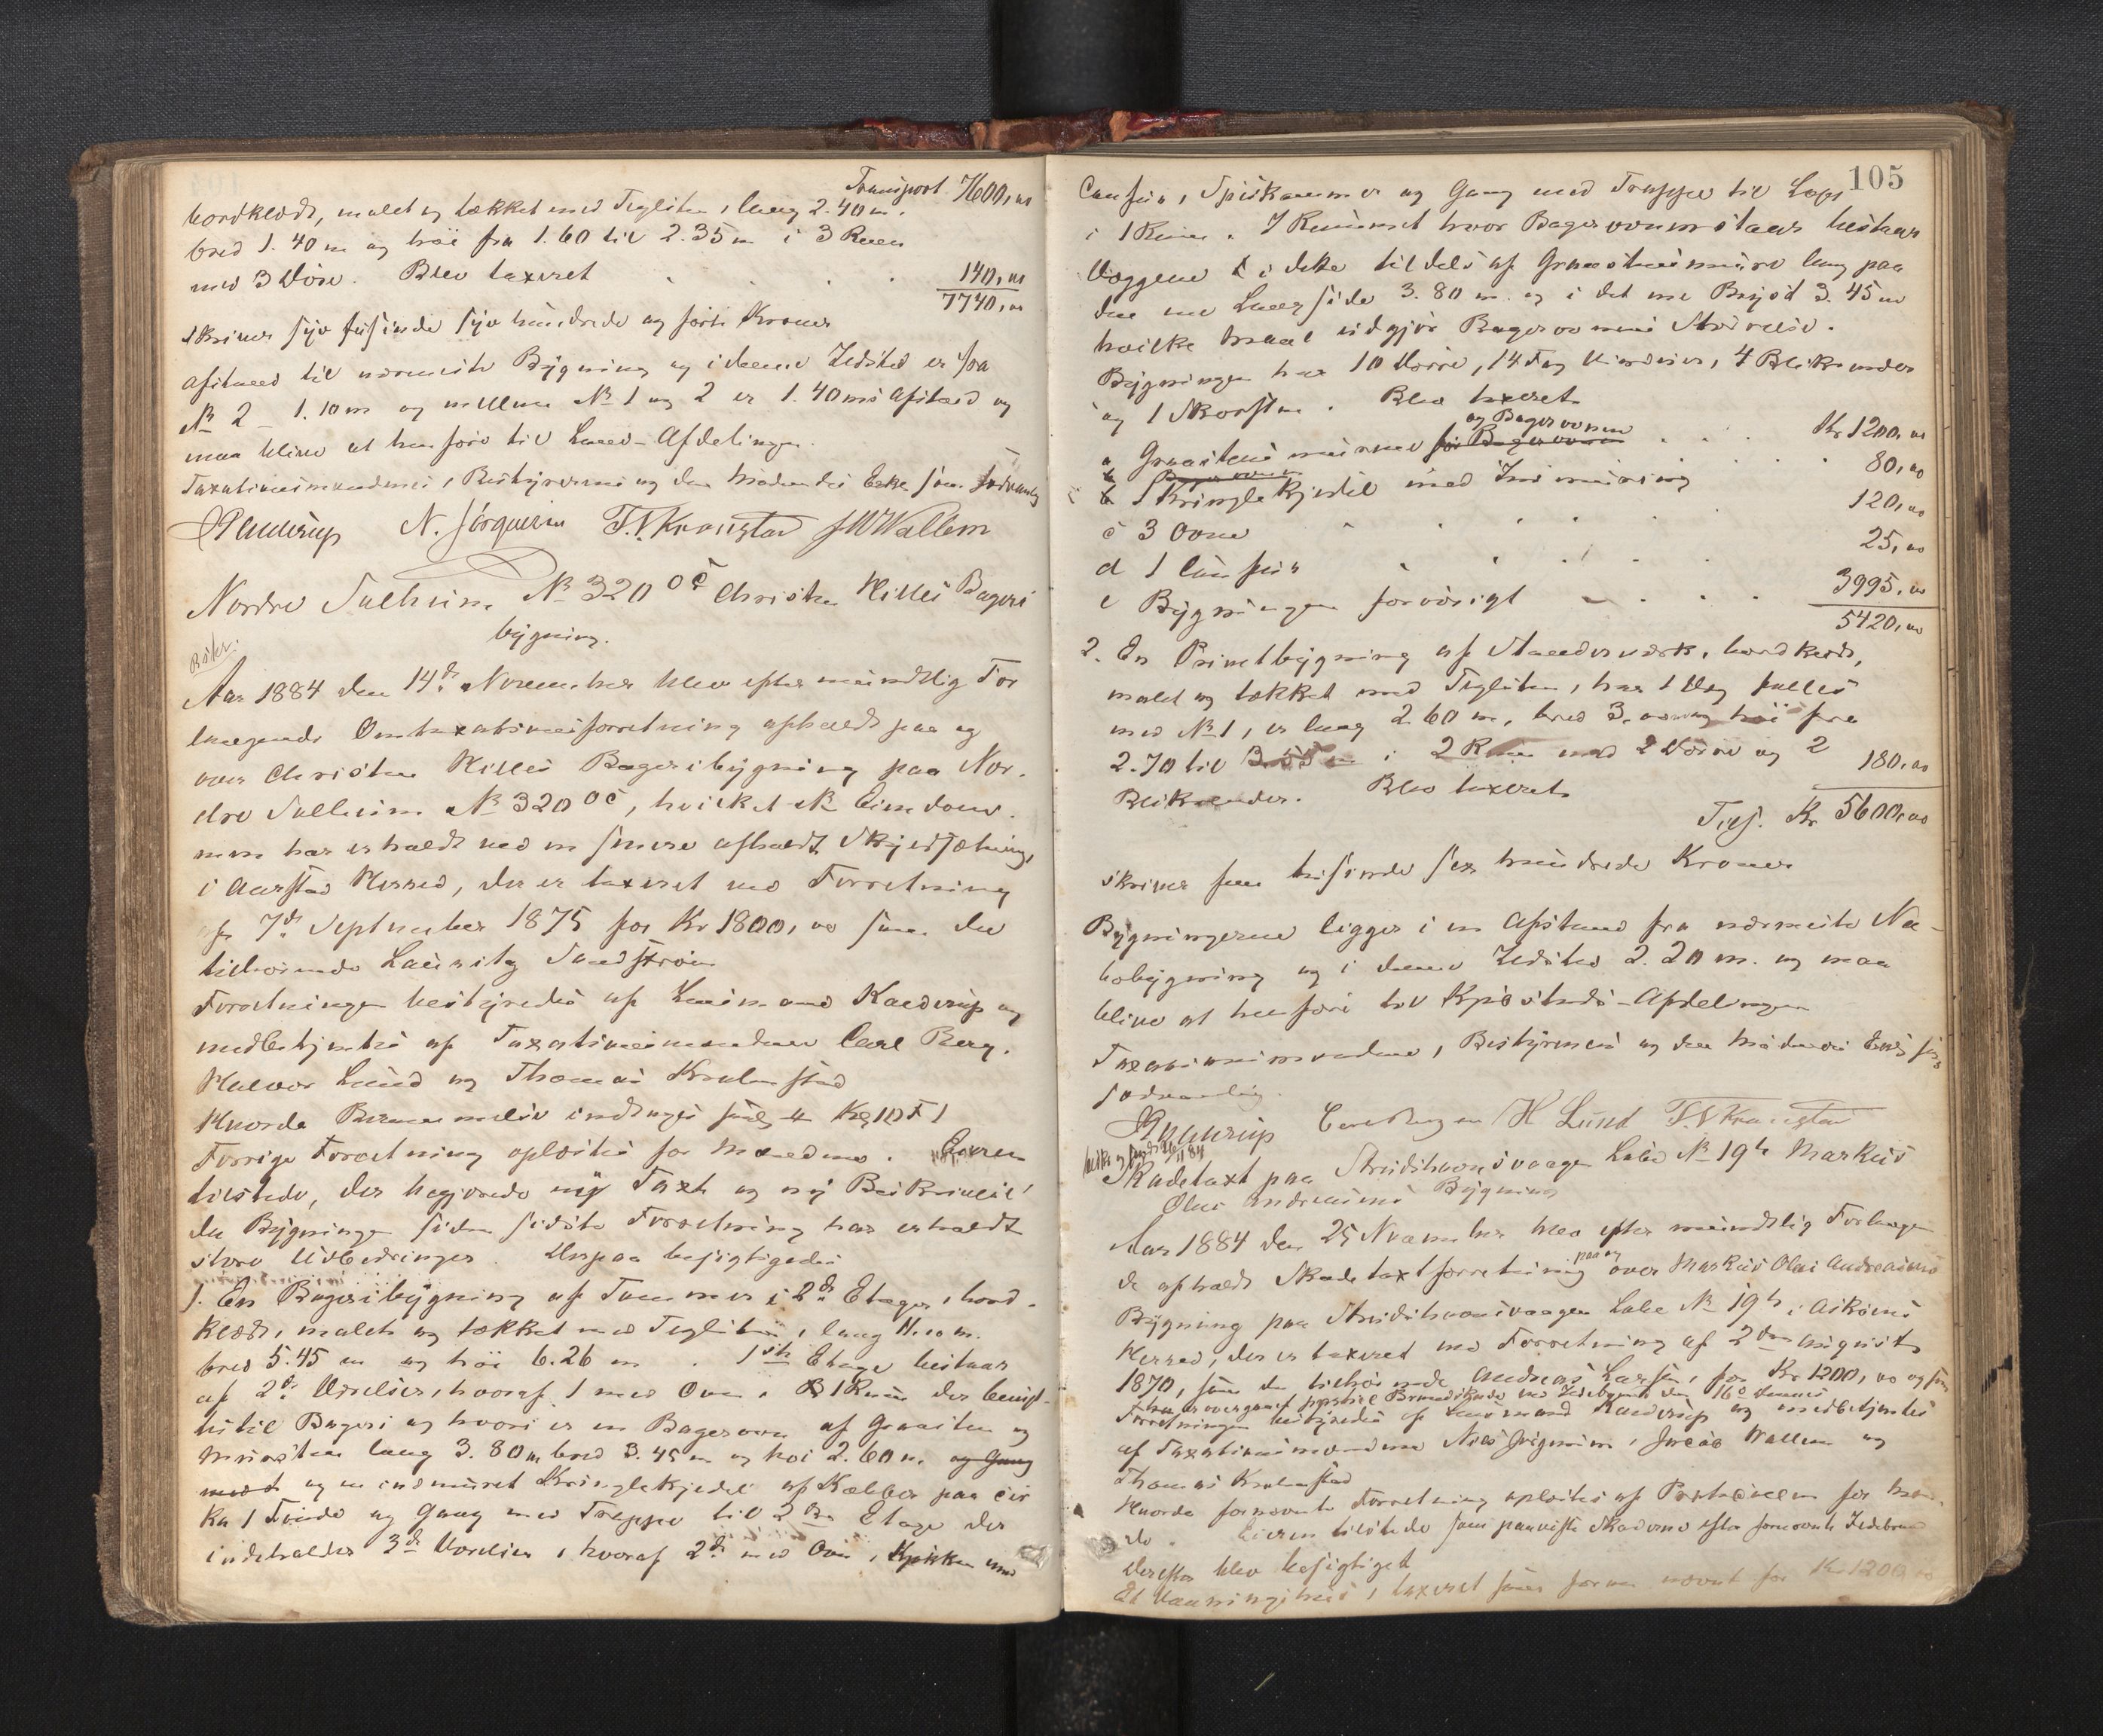 Transport 7600,00
bordklædt, malet og tækket med Tegelsten, lang 2.40 m.
bred 1.40 m og höi fra 1.60 til 2.35 m i 3 Rum
med 3 Döre. Blev taxeret 140,00
7740,00
skriver syv tusinde syv hundrede og förti Kroner
Afstand til nærmeste Bygning og i denne Ildsted er fra
№ 2 1.10 m og mellem № 1 og 2 er 1.40 ms Afstand og
maa blive at henföre til Land-Afdelingen.
Taxationsmændenes, Bestyrerens og den mödendes Eed som sædvanlig
N. Jörgensen T. N. Kronstad J W Wallem
Nordre Solheim № 320 oc Christen Hilles Bageri
bygning.
Aar 1884 den 14de November blev efter mundtlig For
langende Omtaxationsforretning afholdt paa og
over Christen Hilles Bageribygning paa Nor-
dre Solheim № 320 oc, hvilket № Eiendom-
men har erholdt ved en senere afholdt Skyldsætning,
i Aarstad Herred, der er taxeret ved Forretning
af 7de September 1875 for Kr 1800,00 som da
tilhörende Lauritz Sundström
Forretningen bestyredes af Lensmand Kaderup og
medbetjentes af Taxationsmændene Carl Berg,
Halvor Lund og Thomas Kronstad
Hvorda
Forrige Forretning oplæstes for Mændene. Eieren
tilstede, der begjærede ny Taxt og ny Beskrivelse
da Bygningen siden sidste Forretning har erholdt
store Udbedringer. Derpaa besigtigedes
1. En Bageribygning af Tömmer i 2de Etager, bord-
klædt, malet og tækket med Teglsten, lang 11.10 m.
bred 5.45 m og höi 6.26 m. 1ste Etage bestaar
af 2de Værelser, hvoraf 1 med Ovn, 1 Rum der benyt-
tes til Bageri og hvori er en Bagerovn af Graasten og
Mursten lang 3.80 m bred 3.45 m og höi 2.60 m. og Gang
med og en indmuret Kringlekjedel af Kobber paa cir
ka 1 Tönde og Gang med Trappe til 2den Etage der
indeholder 3de Værelser, hvoraf 2de med Ovn, Kjökken med
105
Comfur, Spiskammer og Gang med Trappe til Loft
i 1 Rum. I Rummet hvor Bagerovnen staar bestaar
Væggene i dette tildels af Graastensmure lang paa
den ene Langside 3.80 m. og i det ene Bryst 3.45 m
hvilke Maal udgjör Bagerovnens Störrelse.
Bygningen har 10 Dörre, 14 Fag Vinduer, 4 Blikrender
og 1 Skorsten. Blev taxeret
og Bagerovnen
a Graastensmurene for Bagerovnen Kr 1200,00
b 1 Kringlekjedel med Indmuring 80,00
c 3 Ovne 120,00
d 1 Comfur 25,00
e Bygningen forövrigt 3995,00
5420,00
2. En Privetbygning af Stenderværk, bordklædt,
malet og tækket med Teglsten, har 1 Væg fælles
med № 1, er lang 2.60 m, bred 3.00 m og höi fra
2.70 til 3.55 m i 2 Rum med 2 Dörre og 2
Blikrender. Blev taxeret 180,00
Tils. Kr 5600,00
skriver fem tusinde sex hundrede Kroner
Bygningerne ligger i en Afstand fra nærmeste Na-
bobygning og i denne Ildsted 2.20 m. og maa
blive at henföre til Kjöbstads-Afdelingen
Taxationsmændenes, Bestyrerens og den mödendes Eed som
sædvanlig.
H Lund T. N. Kronstad
Skadetaxt paa Strudshavnsvaagen Löbe № 19b Markus
Olai Andreasens Bygning
Aar 1884 den 25 November blev efter mundtlig Forlangen
de afholdt Skadetaxtforretning paa og over Markus Olai Andreasens
Bygning paa Strudshavnsvaagen Löbe № 19b i Asköens
Herred, der er taxeret ved Forretning af 2den August
1870, som da tilhörende Andreas Larsen, for Kr 1200,00 og som
Forretningen bestyredes af Lensmand Kaderup og medbetjentes
af Taxationsmændene Nils Jörgensen, Wallem og
Thomas Kronstad
Hvorda fornævnte Forretning oplæstes af Protocollen for Mæn-
de. Eieren tilstede som paaviste Skaderne efter fornævnte Ildebrand
Derefter blev besigtiget
Et Vaaningshus, taxeret som foran nævnt for Kr 1200,00